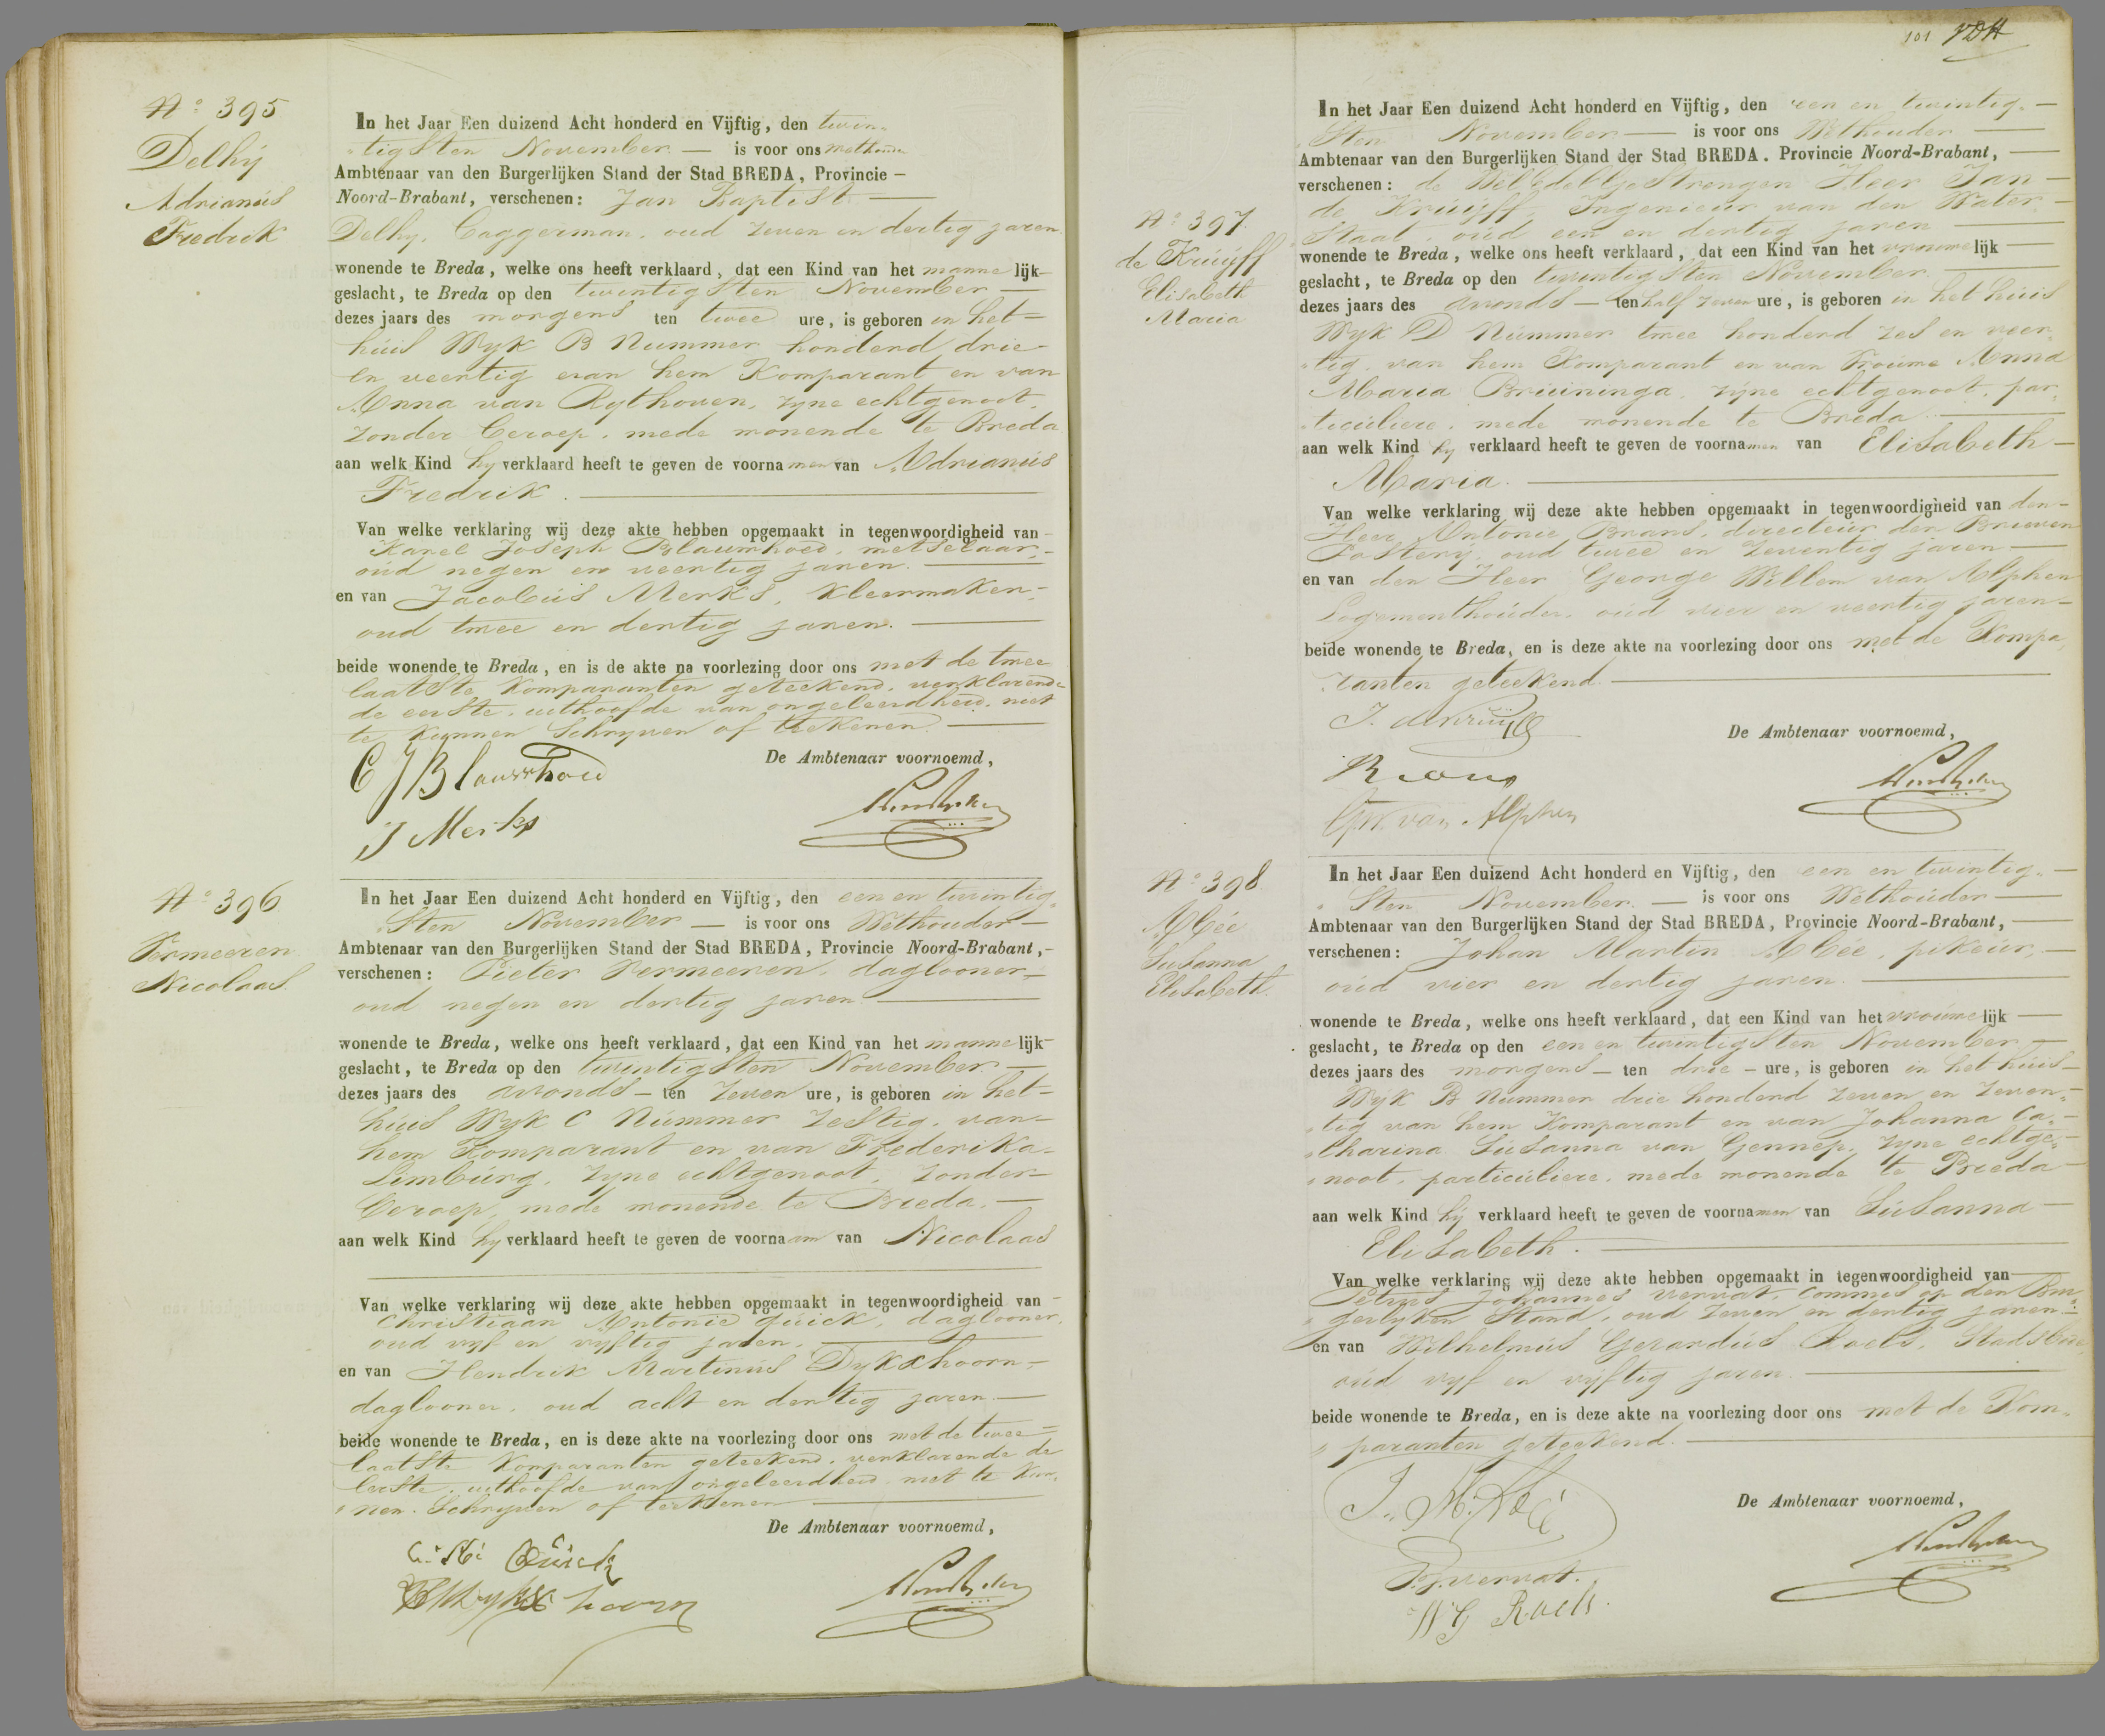 Nº 395
Delhij
Adrianus
Fredrik
In het Jaar Een duizend Acht honderd en Vijftig, den twin„
„tigsten November — is voor ons Wethouder
Ambtenaar van den Burgerlijken Stand der Stad BREDA, Provincie —
Noord-Brabant, verschenen: Jan Baptist —
Delhy, Baggerman, oud zeven en dertig jaren
wonende te Breda, welke ons heeft verklaard, dat een Kind van het mannelijk
geslacht, te Breda op den twintigsten November —
dezes jaars des morgens ten twee ure, is geboren in het
huis Wyk B Nummer honderd drie
en veertig van hem Komparant en van
Anna van Rythoven, zyne echtgenoot,
zonder beroep, mede wonende te Breda
aan welk Kind hy verklaard heeft te geven de voornamen van Adrianus
Fredrik. —
Van welke verklaring wij deze akte hebben opgemaakt in tegenwoordigheid van
Karel Joseph Blaumhoed, metselaar,
oud negen en veertig jaren. —
en van Jacobus Merks, Kleermaker,
oud twee en dertig jaren. —
beide wonende te Breda, en is de akte na voorlezing door ons met de twee
laatste Komparanten geteekend, verklarende
de eerste, uithoofde van ongeleerdheid, niet
te kunnen Schryven of teekenen. —
C J Blaumhoed
De Ambtenaar voornoemd,
J Merks
Nº 396
Vermeeren
Nicolaas.
In het Jaar Een duizend Acht honderd en Vijftig, den een en twintig„
„sten November — is voor ons Wethouder —
Ambtenaar van den Burgerlijken Stand der Stad BREDA, Provincie Noord-Brabant, —
verschenen: Pieter Vermeeren, daglooner —
oud negen en dertig jaren —
wonende te Breda, welke ons heeft verklaard, dat een Kind van het mannelijk
geslacht, te Breda op den twintigsten November —
dezes jaars des avonds — ten zeven ure, is geboren in het
huis Wyk C Nummer zestig, van
hem Komparant en van Frederika
Limburg, zyne echtgenoot, zonder
beroep, mede wonende te Breda. —
aan welk Kind hy verklaard heeft te geven de voornaam van Nicolaas
Van welke verklaring wij deze akte hebben opgemaakt in tegenwoordigheid van
Christiaan Antonie Quick, daglooner,
oud vyf en vyftig jaren, —
en van Hendrik Martinus Dykxhoorn
daglooner, oud acht en dertig jaren —
beide wonende te Breda, en is deze akte na voorlezing door ons met de twee
laatste Komparanten geteekend, verklarende de
eerste, uithoofde van ongeleerdheid niet te kun„
„nen Schryven of teekenen —
De Ambtenaar voornoemd,
Quick
101
Nº 397.
de Kruijff
Elisabeth
Maria
In het Jaar Een duizend Acht honderd en Vijftig, den een en twintig„ —
„sten November — is voor ons Wethouder —
Ambtenaar van den Burgerlijken Stand der Stad BREDA. Provincie Noord-Brabant, —
verschenen: de WelEdelGestrengen Heer Jan —
de Kruijff, Ingenieur van den Water„
Staat, oud een en dertig jaren —
wonende te Breda, welke ons heeft verklaard, dat een Kind van het vrouwelijk —
geslacht, te Breda op den twintigsten November. —
dezes jaars des avonds — ten half zeven ure, is geboren in het huis
Wyk D Nummer twee honderd zes en veer„
„tig, van hem Komparant en van Vrouwe Anna
Maria Bruininga, zyne echtgenoot, par„
„ticuliere, mede wonende te Breda —
aan welk Kind hy verklaard heeft te geven de voornamen van Elisabeth —
Maria. —
Van welke verklaring wij deze akte hebben opgemaakt in tegenwoordigheid van den
Heer Antonie Brans, directeur der Brieven
Postery, oud twee en zeventig jaren —
en van den Heer George Willem van Alphen
Logementhouder, oud vier en veertig jaren —
beide wonende te Breda, en is deze akte na voorlezing door ons met de Kompa„
„ranten geteekend —
J. de Kruijff
De Ambtenaar voornoemd,
Brans
GW. van Alphen
Nº 398.
Abée
Susanna
Elisabeth.
In het Jaar Een duizend Acht honderd en Vijftig, den een en twintig„ —
„sten November. — is voor ons Wethouder —
Ambtenaar van den Burgerlijken Stand der Stad BREDA, Provincie Noord-Brabant, —
verschenen: Johan Martin Abée, pikeur, —
oud vier en dertig jaren. —
wonende te Breda, welke ons heeft verklaard, dat een Kind van het vrouwelijk —
geslacht, te Breda op den een en twintigsten November —
dezes jaars des morgens — ten drie — ure, is geboren in het huis
Wyk B Nummer drie honderd zeven en zeven„
„tig van hem Komparant en van Johanna Ca„
„tharina Susanna van Gennep, zyne echtge„
„noot, particuliere, mede wonende te Breda
aan welk Kind hij verklaard heeft te geven de voornamen van Susanna —
Elisabeth. —
Van welke verklaring wij deze akte hebben opgemaakt in tegenwoordigheid van
Petrus Johannes Vervat, Commies op den Bur„
„gerlyken Stand, oud zeven en dertig jaren
en van Wilhelmus Gerardus Roels,
oud vyf en vyftig jaren. —
beide wonende te Breda, en is deze akte na voorlezing door ons met de Kom„
„paranten geteekend. —
J. M. Abée
De Ambtenaar voornoemd,
P.J. Vervat.
W G Roels.